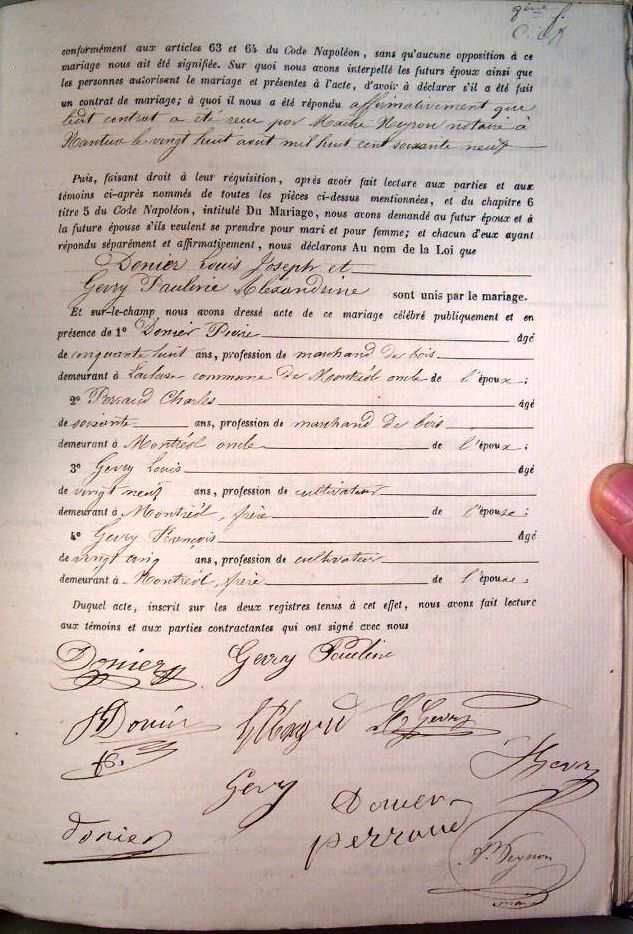 conformément aux articles 63 et 64 du Code Napoléon, sans qu'aucune opposition à ce
mariage nous ait été signifiée. Sur quoi nous avons interpellé les futurs époux ainsi que
les personnes autorisant le mariage et présentes à l'acte, d'avoir à déclarer s'il a été fait
un contrat de mariage; à quoi il nous a été répondu affirmativement que
ledit contrat a été reçu par Maître notaire à
Nantua le vingt huit août mil huit cent soixante neuf
Puis, faisant droit à leur réquisition, après avoir fait lecture aux parties et aux
témoins ci-après nommés de toutes les pièces ci-dessus mentionnées, et du chapitre 6
titre 5 du Code Napoléon, intitulé Du Mariage, nous avons demandé au futur époux et à
la future épouse s'ils veulent se prendre pour mari et pour femme; et chacun d'eux ayant
répondu séparément et affirmativement, nous déclarons Au nom de la Loi que
Donier Louis Joseph et
Gevry Pauline Alexandrine sont unis par le mariage.
Et sur-le-champ, nous avons dressé acte de ce mariage célébré publiquement et en
présence de 1° Donier Pierre âgé
de cinquante huit ans, profession de marchand de bois
demeurant à commune de Montréal oncle de l'époux;
2° Perraud Charles âgé
de soixante ans, profession de marchand de bois
demeurant à Montréal oncle de l'époux;
3° Gevry Louis âgé
de vingt neuf ans, profession de cultivateur
demeurant à Montréal, frère de l'épouse;
4° Gevry François âgé
de vingt cinq ans, profession de cultivateur
demeurant à Montréal, frère de l'épouse;
Duquel acte, inscrit sur les deux registres tenus à cet effet, nous avons fait lecture
aux témoins et aux parties contractantes qui ont signé avec nous
Donier Gevry Pauline
Donier Gevry
Gevry Donier
Donier Perraud